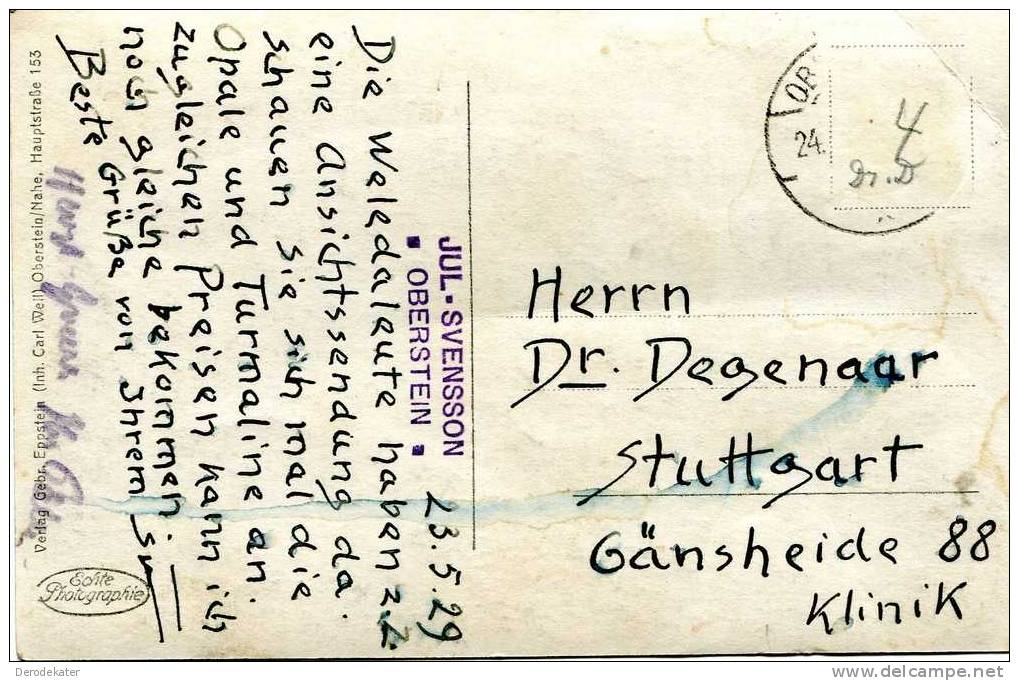 JUL. SVENSSON
OBERSTEIN
23.5.29
Die Weledaleute haben z.Z
eine Ansichtssendung da.
schauen sie sich mal die
Opale und Turmaline an.
zugleichen Preisen kann ich
noch gleiche bekommen.
Beste Grüße von Ihrem Sv
Verlag Gebr. Eppstein (Inh. Carl Weil) Oberstein/Nahe, Hauptstraße 153
Echte
Photographie
24.
4
Dr. D
Herrn
Dr. Degenaar
Stuttgart
Gänsheide 88
Klinik
Derodekater
www.delcampe.net